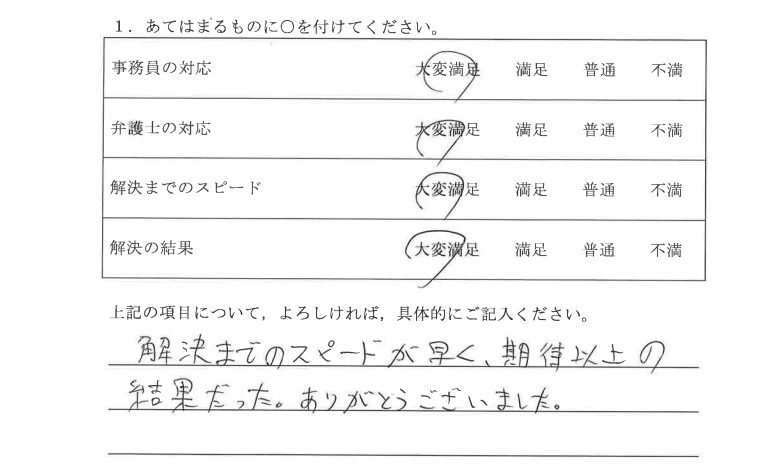 1．あてはまるものに〇を付けてください。
事務員の対応 大変満足 満足 普通 不満
弁護士の対応 大変満足 満足 普通 不満
解決までのスピード 大変満足 満足 普通 不満
解決の結果 大変満足 満足 普通 不満
上記の項目について，よろしければ，具体的にご記入ください。
解決までのスピードが早く、期待以上の
結果だった。ありがとうございました。